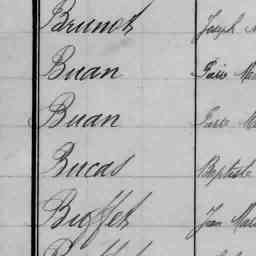 Brunet Joseph
Buan Pierre
Buan Pierre
Bucas Baptiste
Buffet Jean